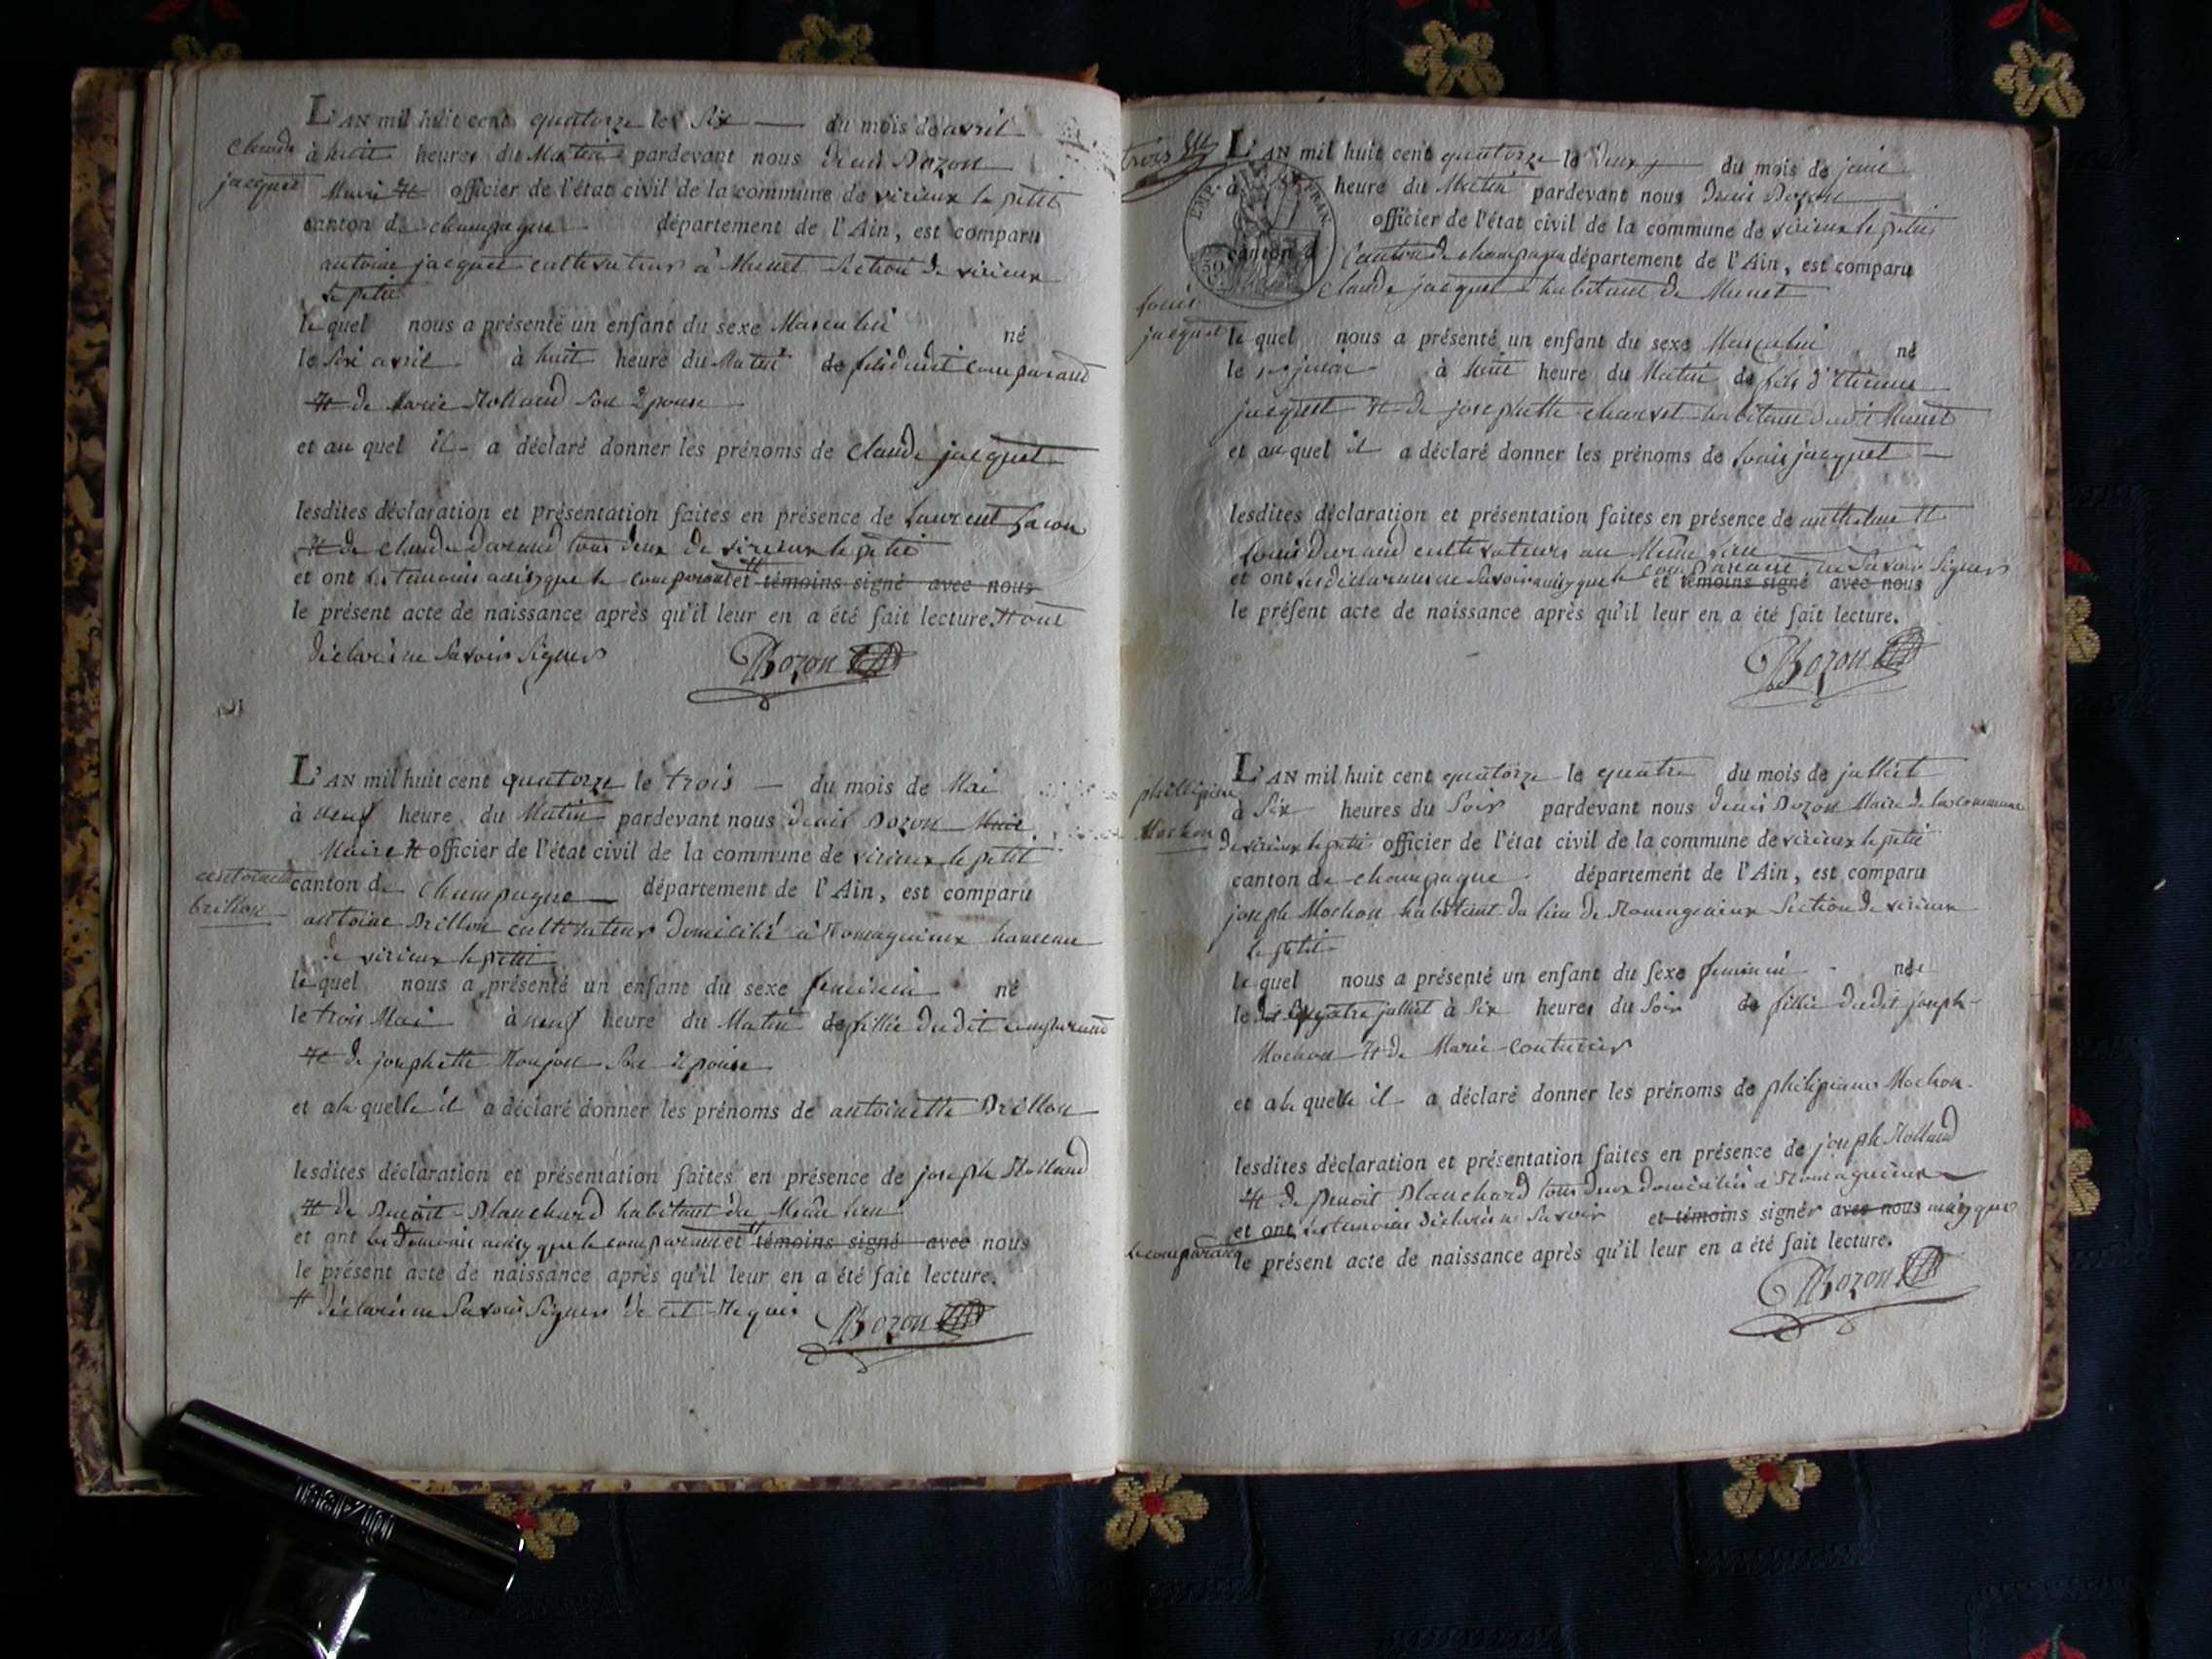 L'AN mil huit cent quatorze le Six du mois de avril
Claude
à huit heures du Matin pardevant nous denis Bozon
jacquet
Maire et officier de l'état civil de la commune de virieux le petit
canton de champagne département de l'Ain, est comparu
antoine jacquet cultivateur à Munet Section de virieux
le petit
le quel nous a présenté un enfant du sexe Masculin né
le Six avril à huit heure du Matin de fils dudit comparand
et de Marie Rolland Son Epouse
et au quel il a déclaré donner les prénoms de Claude jacquet
lesdites déclaration et présentation faites en présence de Laurent
et de Claude durand tous deux de virieux le petit
et ont les temoins ainsy que le comparant et témoins signé avec nous
le présent acte de naissance après qu'il leur en a été fait lecture. Ont
déclaré ne Savoir Signer Bozon
L'AN mil huit cent quatorze le trois du mois de Mai
à neuf heure du Matin pardevant nous denis Bozon
Maire et officier de l'état civil de la commune de virieux le petit
antoinette
canton de Champagne département de l'Ain, est comparu
brillon
antoine Brillon cultivateur domicilié à Romagnieux hameau
de virieux le petit
le quel nous a présenté un enfant du sexe feminin né
le trois Mai à neuf heure du Matin de fillie dudit comparand
et de josephette Son Epouse
et a la quelle il a déclaré donner les prénoms de antoinette Brillon
lesdites déclaration et présentation faites en présence de joseph Rolland
et de Benoit Blanchard habitant du Meme lieu
et ont les Temoins ainsy que le comparant et témoins signé avec nous
le présent acte de naissance après qu'il leur en a été fait lecture.
déclaré ne Savoir Signer de cet Requis Bozon
trois
L'AN mil huit cent quatorze le deux du mois de juin
à heure du Matin pardevant nous denis Bozon
EMP. FRAN.
officier de l'état civil de la commune de virieux le petit
50
canton d Canton de champagne département de l'Ain, est comparu
Claude jacquet habitant de Munet
Louis
jacquet
le quel nous a présenté un enfant du sexe Masculin né
le juin à huit heure du Matin de fils d'Etienne
jacquet et de josephette charvet habitant dudit Munet
et au quel il a déclaré donner les prénoms de Louis jacquet
lesdites déclaration et présentation faites en présence de anthelme et
Louis durand cultivateurs au Meme Lieu
et ont les déclarant ne Savoir ainsy que le comparant ne Savoir Signer et témoins signé avec nous
le présent acte de naissance après qu'il leur en a été fait lecture.
Bozon
L'AN mil huit cent quatorze le quatre du mois de julliet
phillipine
à Six heures du Soir pardevant nous denis Bozon Maire de la commune
Mochon
de virieux le petit officier de l'état civil de la commune de virieux le petit
canton de champagne département de l'Ain, est comparu
joseph Mochon habitant du lieu de Romagnieux Section de virieux
le petit
le quel nous a présenté un enfant du sexe feminin née
le quatre julliet à Six heures du Soir de fillie dudit joseph
Mochon et de Marie Couturier
et a la quelle il a déclaré donner les prénoms de philipiene Mochon
lesdites déclaration et présentation faites en présence de joseph Rolland
et de Benoit Blanchard tous deux domiciliés à Romagnieux
et ont les temoins déclaré ne Savoir et témoins signér avec nous ainsy que
le comparant
le présent acte de naissance après qu'il leur en a été fait lecture.
Bozon